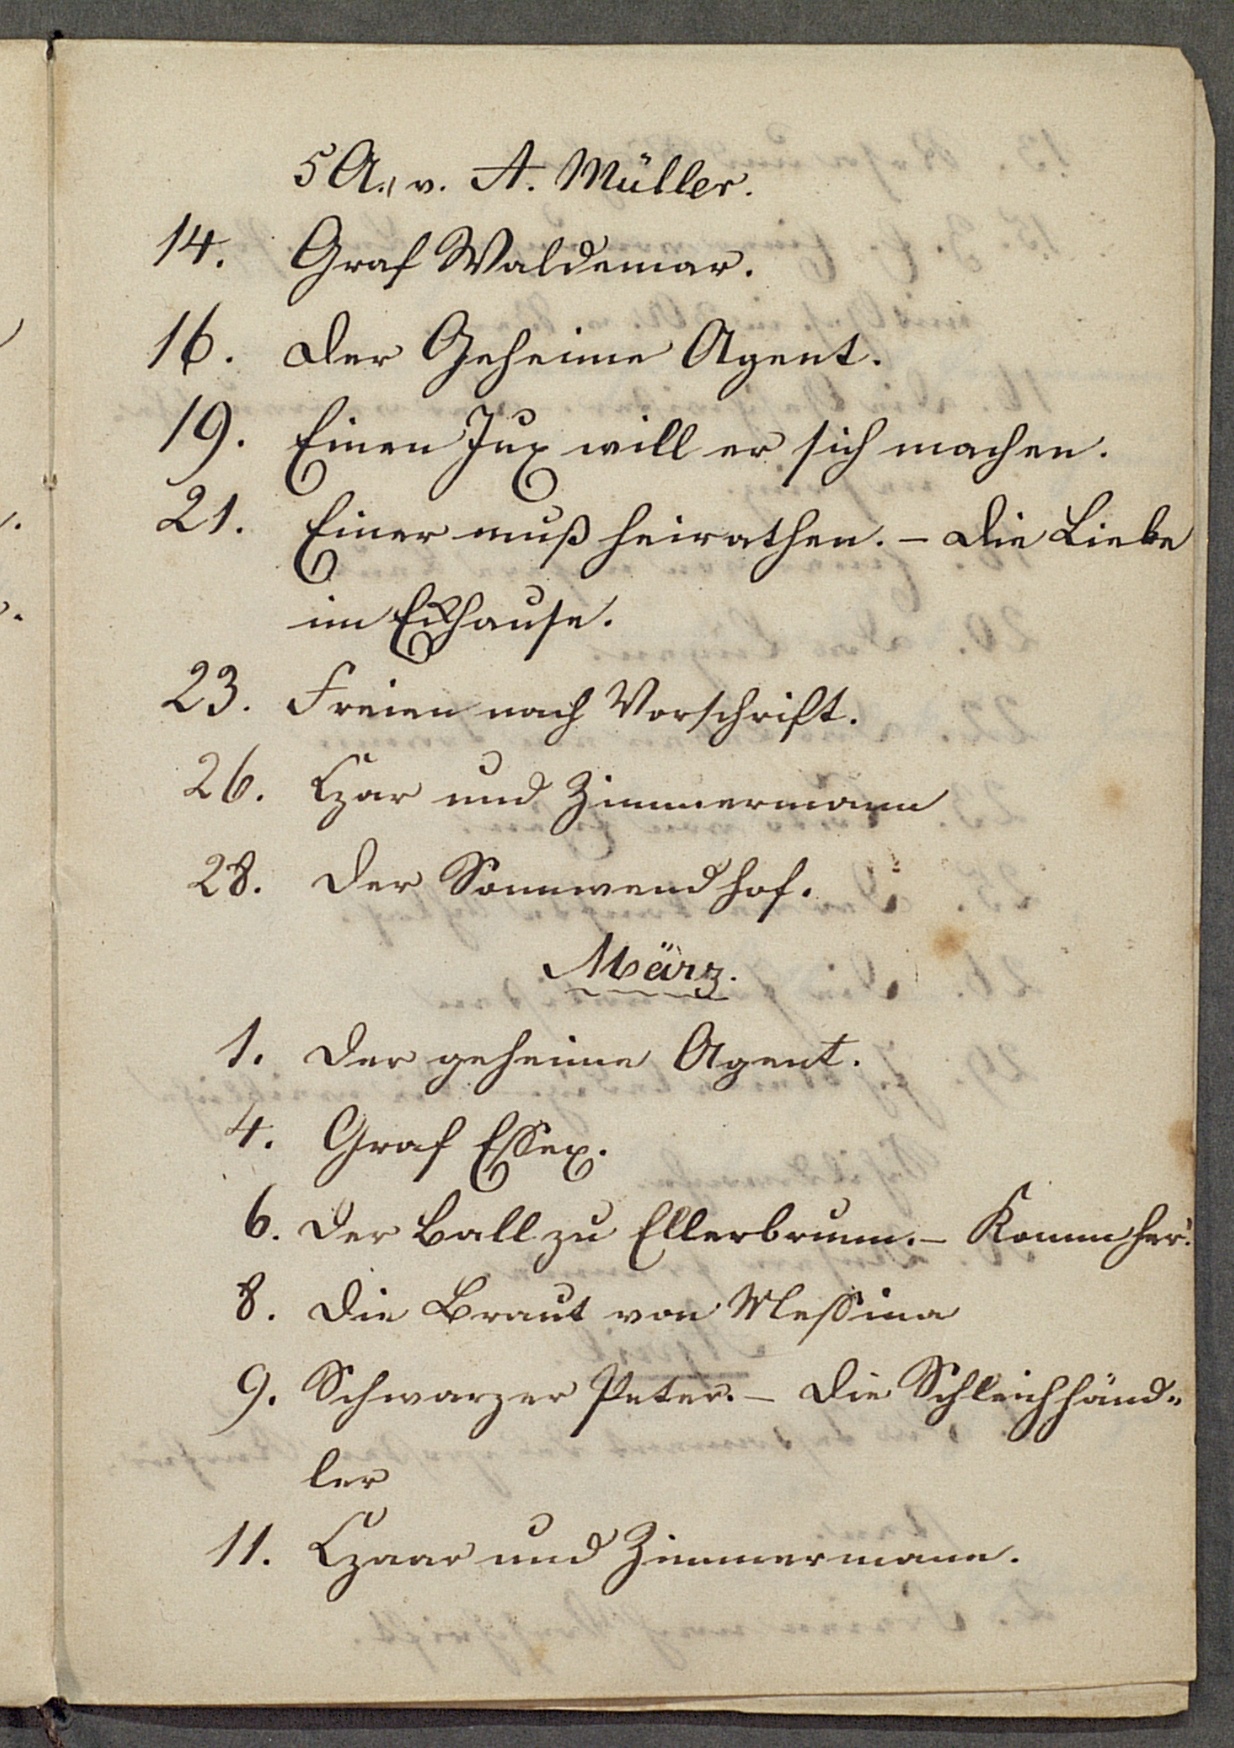 5 A., v. A. Müller.
14. Graf Waldemar.
16. Der Geheime Agent.
19. Einen Jux will er sich machen.
21. Einer muß heirathen. – Die Liebe
im Eckhause.
23. Freien nach Vorschrift.
26. Czar und Zimmermann
28. Der Sonnwendhof.
März.
1. Der geheime Agent.
4. Graf Essex.
6. Der Ball zu Ellerbrunn. – Komm her!
8. Die Braut von Messina
9. Schwarzer Peter. – Die Schleichhänd„
ler
11. Czaar und Zimmermann.